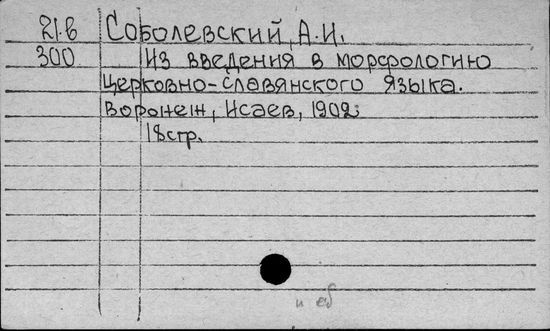 21.в Соболевский, А.И.
300 Из введения в морфологию
Церковно-славянского языка.
Воронеж, Исаев, 1902
18 стр.